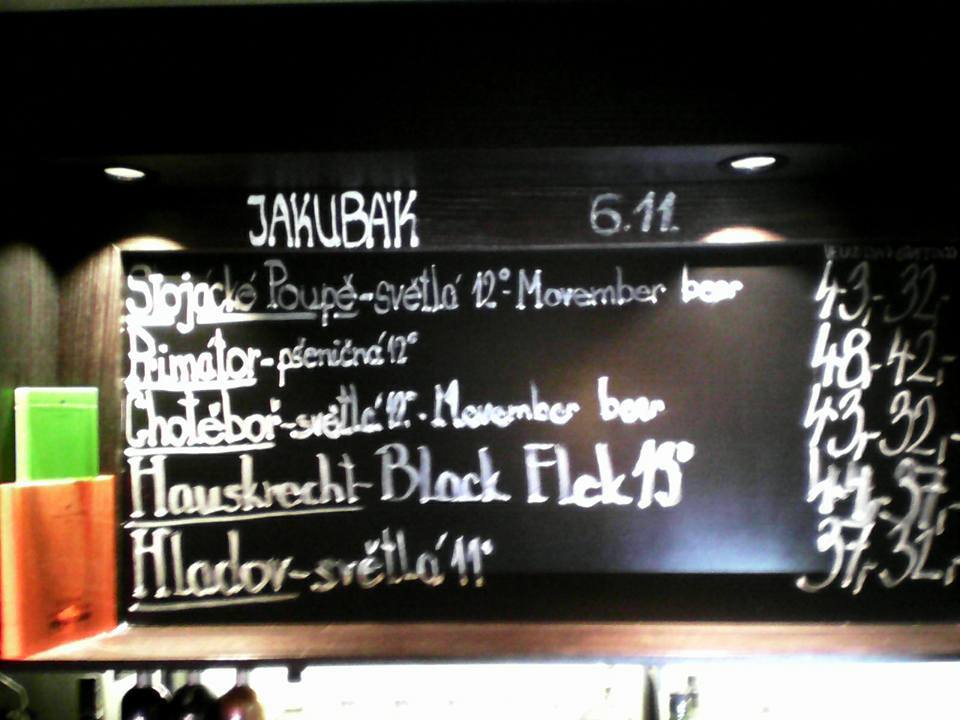 JAKUBÁK 6.11.
Stojácké Poupě-světlá 12° Movember beer 43,- 32,-
Primátor-pšeničná 12° 48,- 42,-
Chotěboř-světlá 12°. Movember beer 43,- 32,-
Hauskrecht-Black Flek 15° 44,- 37,-
Hladov-světlá 11° 37,- 31,-